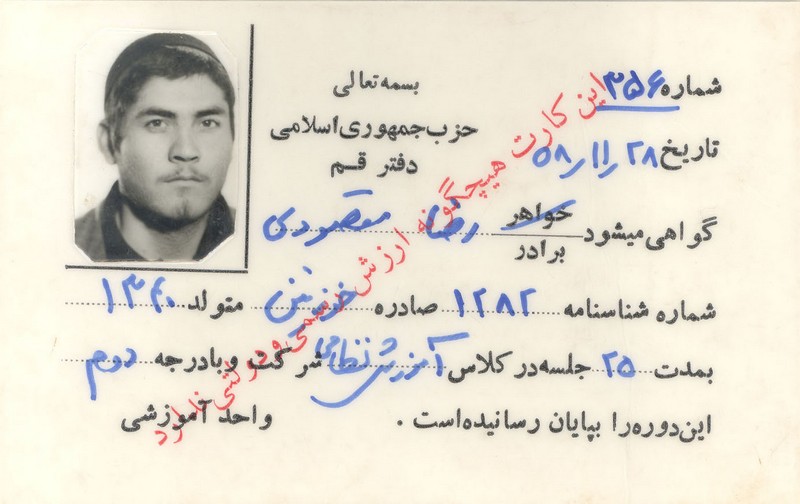 بسمه تعالی
حزب جمهوری اسلامی
دفتر قم
شماره ۳۵۶
تاریخ ۵۸٫۱۱٫۲۸
گواهی میشود خواهر برادر رضا مقصودی
شماره شناسنامه ۱۲۸۲ صادره متولد ۱۳۴۰
بمدت ۲۵ جلسه در کلاس آموزش نظامی شرکت و با درجه دوم
این دوره را بپایان رسانیده است .
واحد آموزشی
این کارت هیچگونه ارزش رسمی و دولتی ندارد